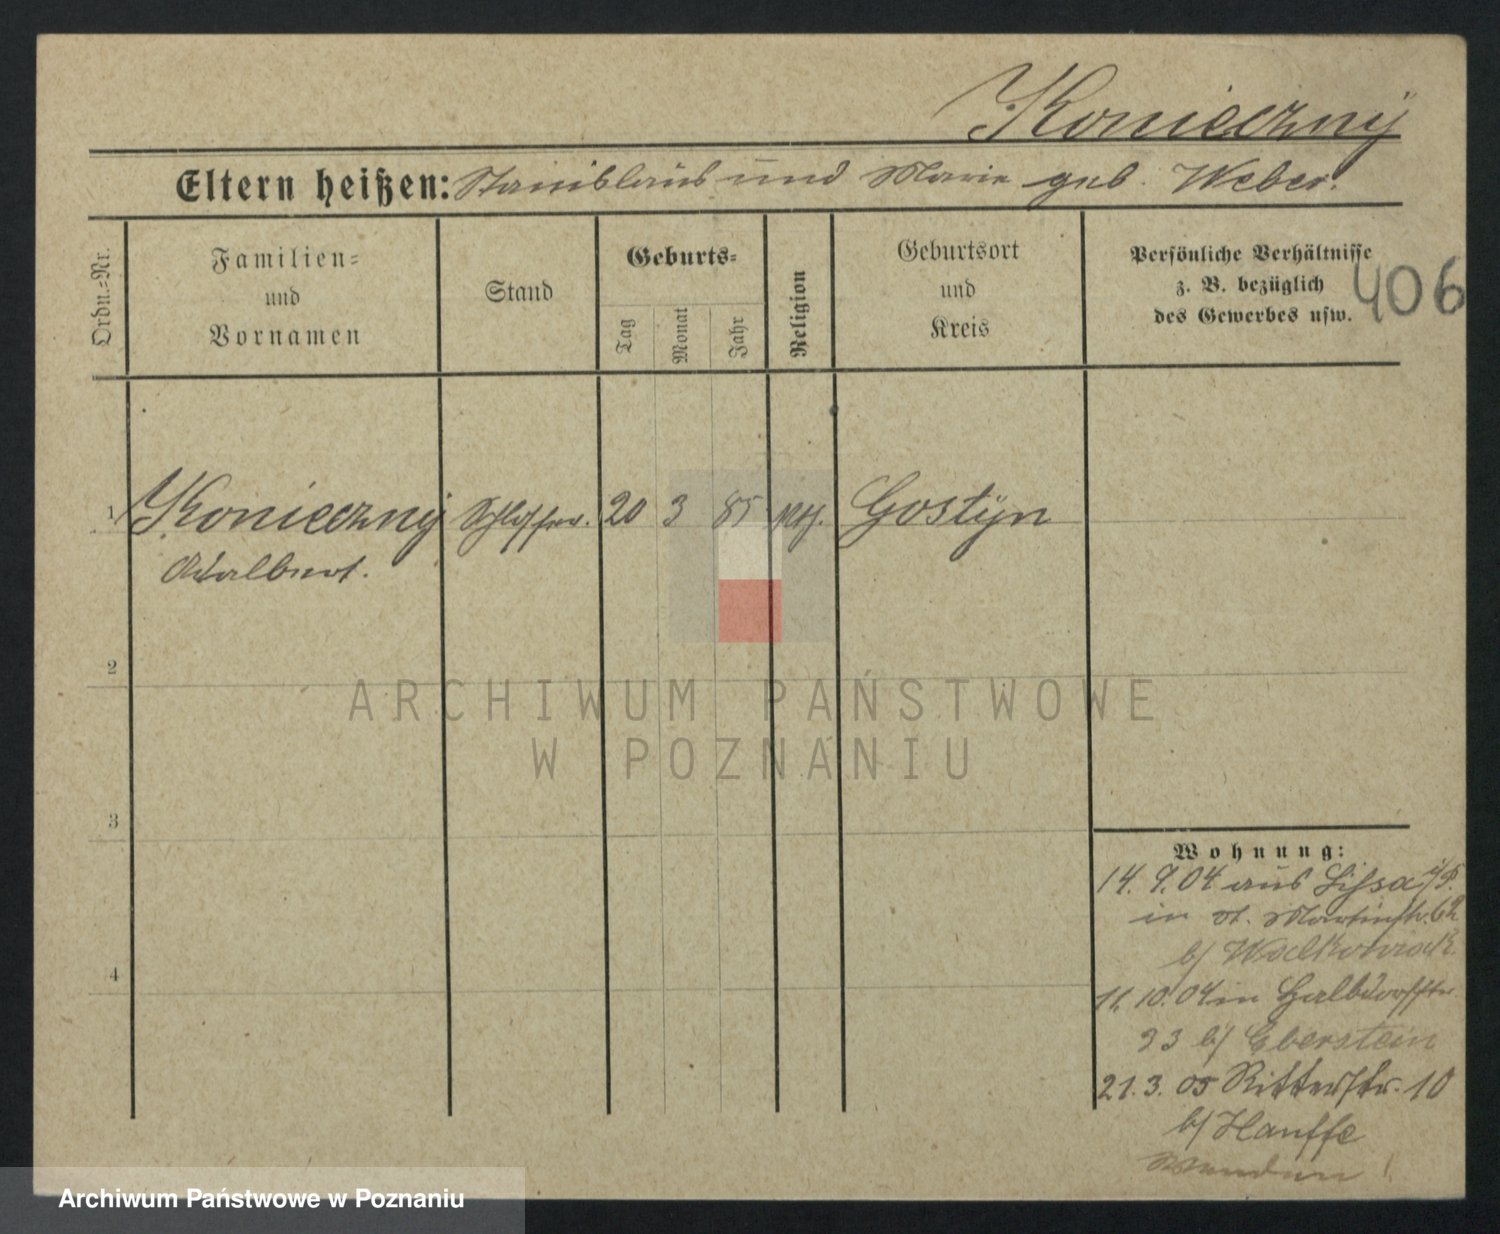 Konieczny
Eltern heißen: Stanislaus und Marie geb. Weber.
Ordn.-Nr.
Familien-
und
Vornamen
Stand
Geburts-
Tag
Monat
Jahr
Religion
Geburtsort
und
Kreis
Persönliche Verhältnisse
z. B. bezüglich
des Gewerbes usw.
406
1 Konieczny Schlosser. 20 3 85 kth. Gostyn
Adalbert.
2
3
4
ARCHIWUM PAŃSTWOWE
W POZNANIU
Wohnung:
14. 9. 04 aus Lissa i/P.
in St. Martinstr. 62
b/
11. 10. 04 in Halbdorfstr.
23 b/ Eberstein
21. 3. 05 Ritterstr. 10
b/ Hauffe
Archiwum Państwowe w Poznaniu